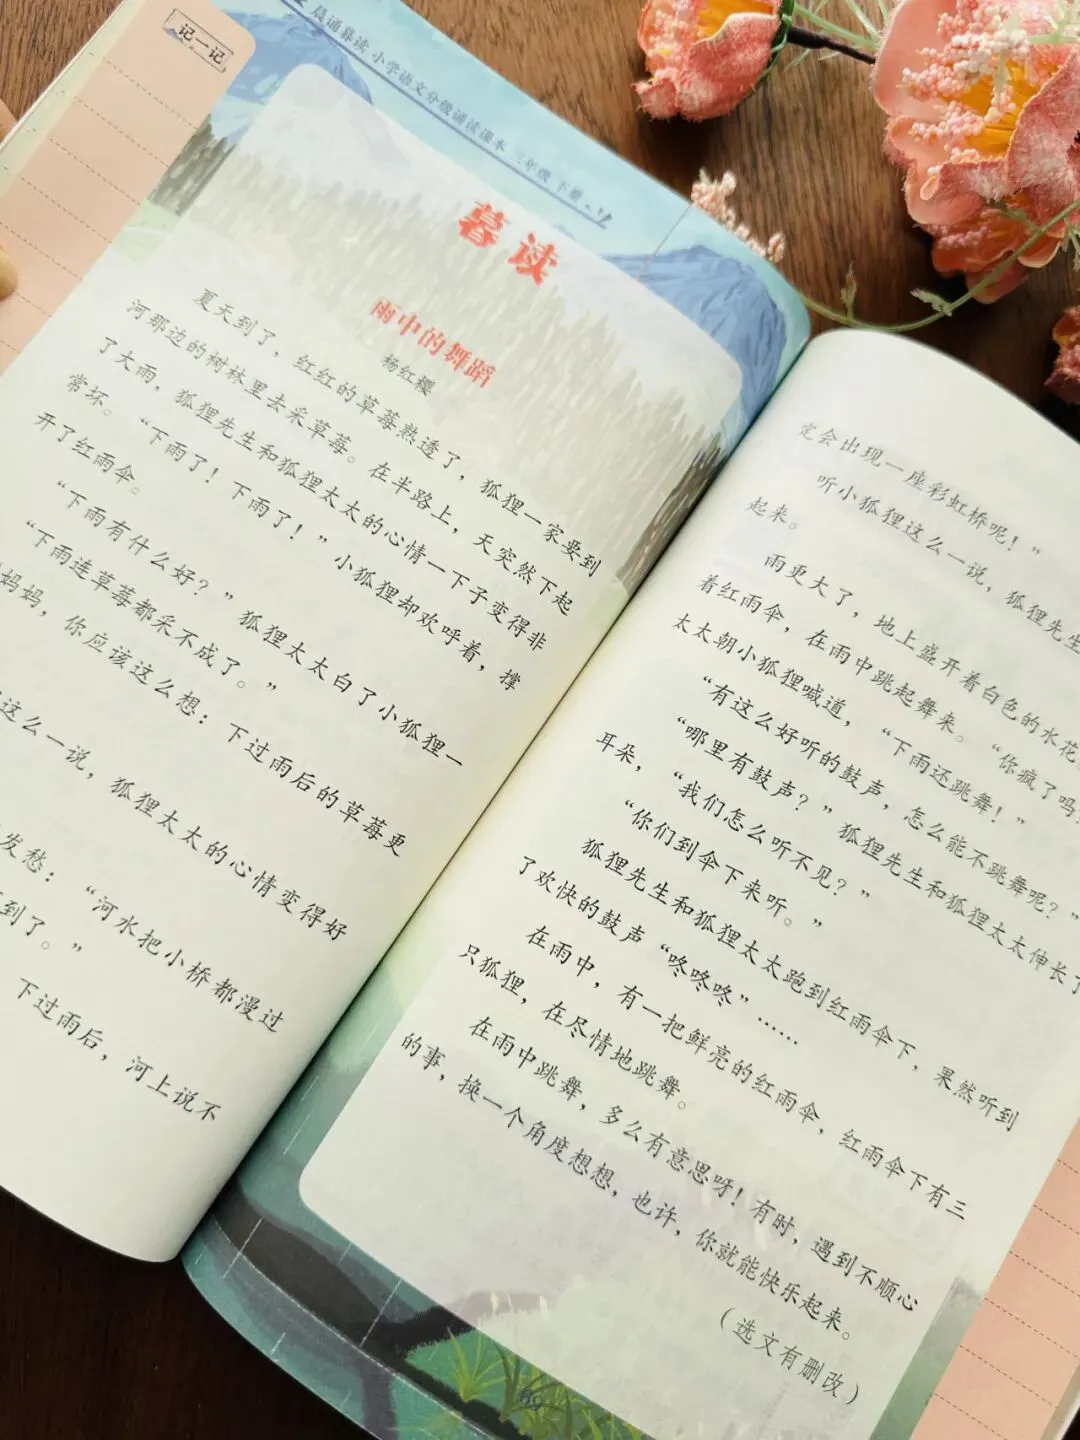 记一记
晨诵暮读 小学语文分级诵读课本 三年级 下册
暮读
雨中的舞蹈
杨红樱
夏天到了，红红的草莓熟透了，狐狸一家要到
河那边的树林里去采草莓。在半路上，天突然下起
了大雨，狐狸先生和狐狸太太的心情一下子变得非
常坏。“下雨了！下雨了！”小狐狸却欢呼着，撑
开了红雨伞。
“下雨有什么好？”狐狸太太白了小狐狸一
“下雨连草莓都采不成了。”
妈妈，你应该这么想：下过雨后的草莓更
这么一说，狐狸太太的心情变得好
发愁：“河水把小桥都漫过
到了。”
下过雨后，河上说不
定会出现一座彩虹桥呢！”
听小狐狸这么一说，狐狸先生
起来。
雨更大了，地上盛开着白色的水花
着红雨伞，在雨中跳起舞来。“你疯了吗
太太朝小狐狸喊道，“下雨还跳舞！”
“有这么好听的鼓声，怎么能不跳舞呢？”
“哪里有鼓声？”狐狸先生和狐狸太太伸长了
耳朵，“我们怎么听不见？”
“你们到伞下来听。”
狐狸先生和狐狸太太跑到红雨伞下，果然听到
了欢快的鼓声“咚咚咚”……
在雨中，有一把鲜亮的红雨伞，红雨伞下有三
只狐狸，在尽情地跳舞。
在雨中跳舞，多么有意思呀！有时，遇到不顺心
的事，换一个角度想想，也许，你就能快乐起来。
（选文有删改）
69